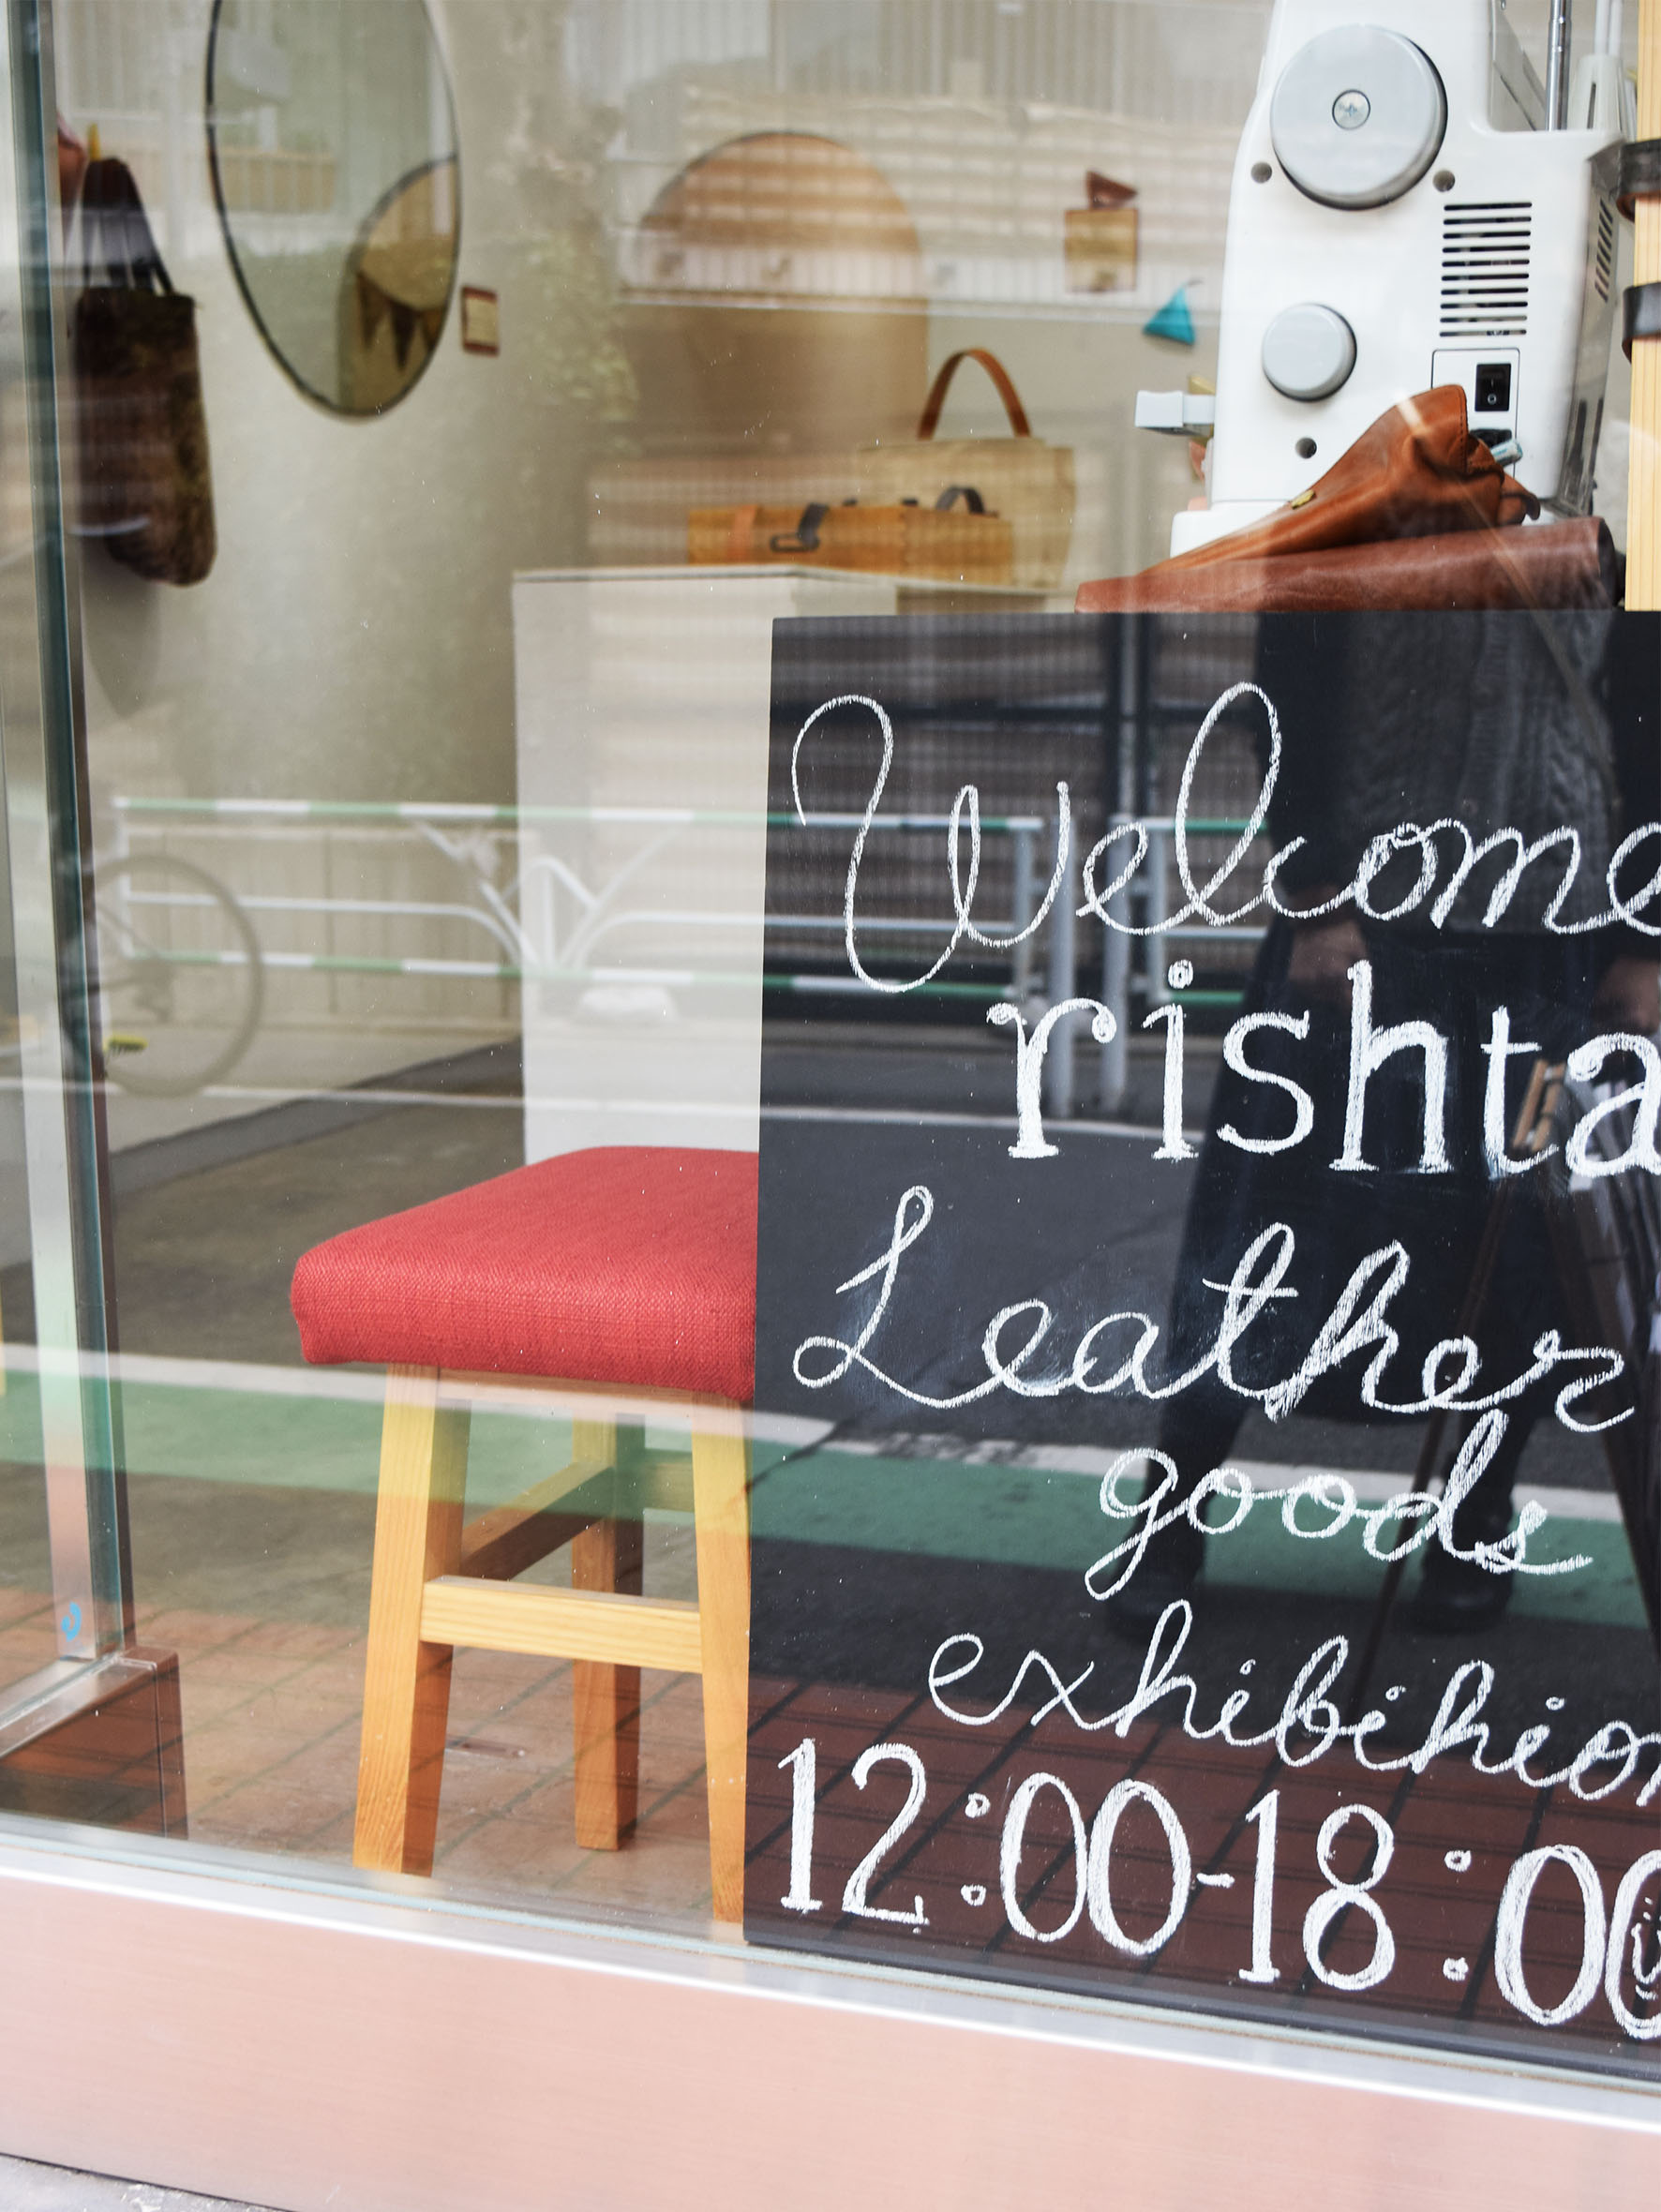 Welcome
rishta
Leather
goods
exhibition
12:00-18:00